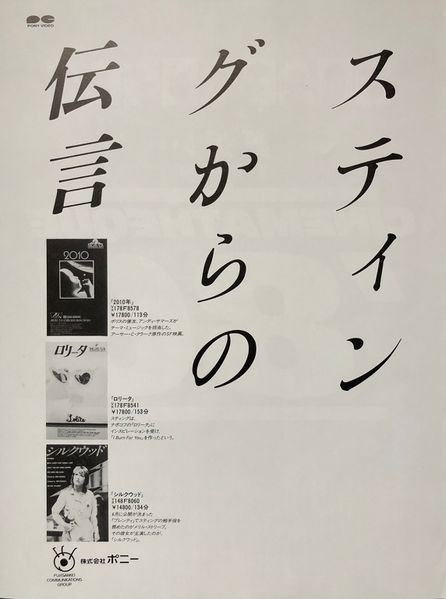 PONY VIDEO
スティン
グからの
伝言
2010
「2010年」
¥17800/113分
ポリスの盟友、アンディ・サマーズが
テーマ・ミュージックを担当した。
アーサー・C・クラーク原作のSF映画。
ロリータ
Lolita
「ロリータ」
¥17800/153分
スティングは、
ナボコフの「ロリータ」に
インスピレーションを受け、
「I Burn For You」を作ったという。
シルクウッド
「シルクウッド」
¥14800/134分
6月に公開が決まった
「プレンティ」でスティングの相手役を
務めたのがメリル・ストリープ。
その彼女が主演したのが、
「シルクウッド」。
FUJISANKEI
COMMUNICATIONS
GROUP
株式会社 ポニー